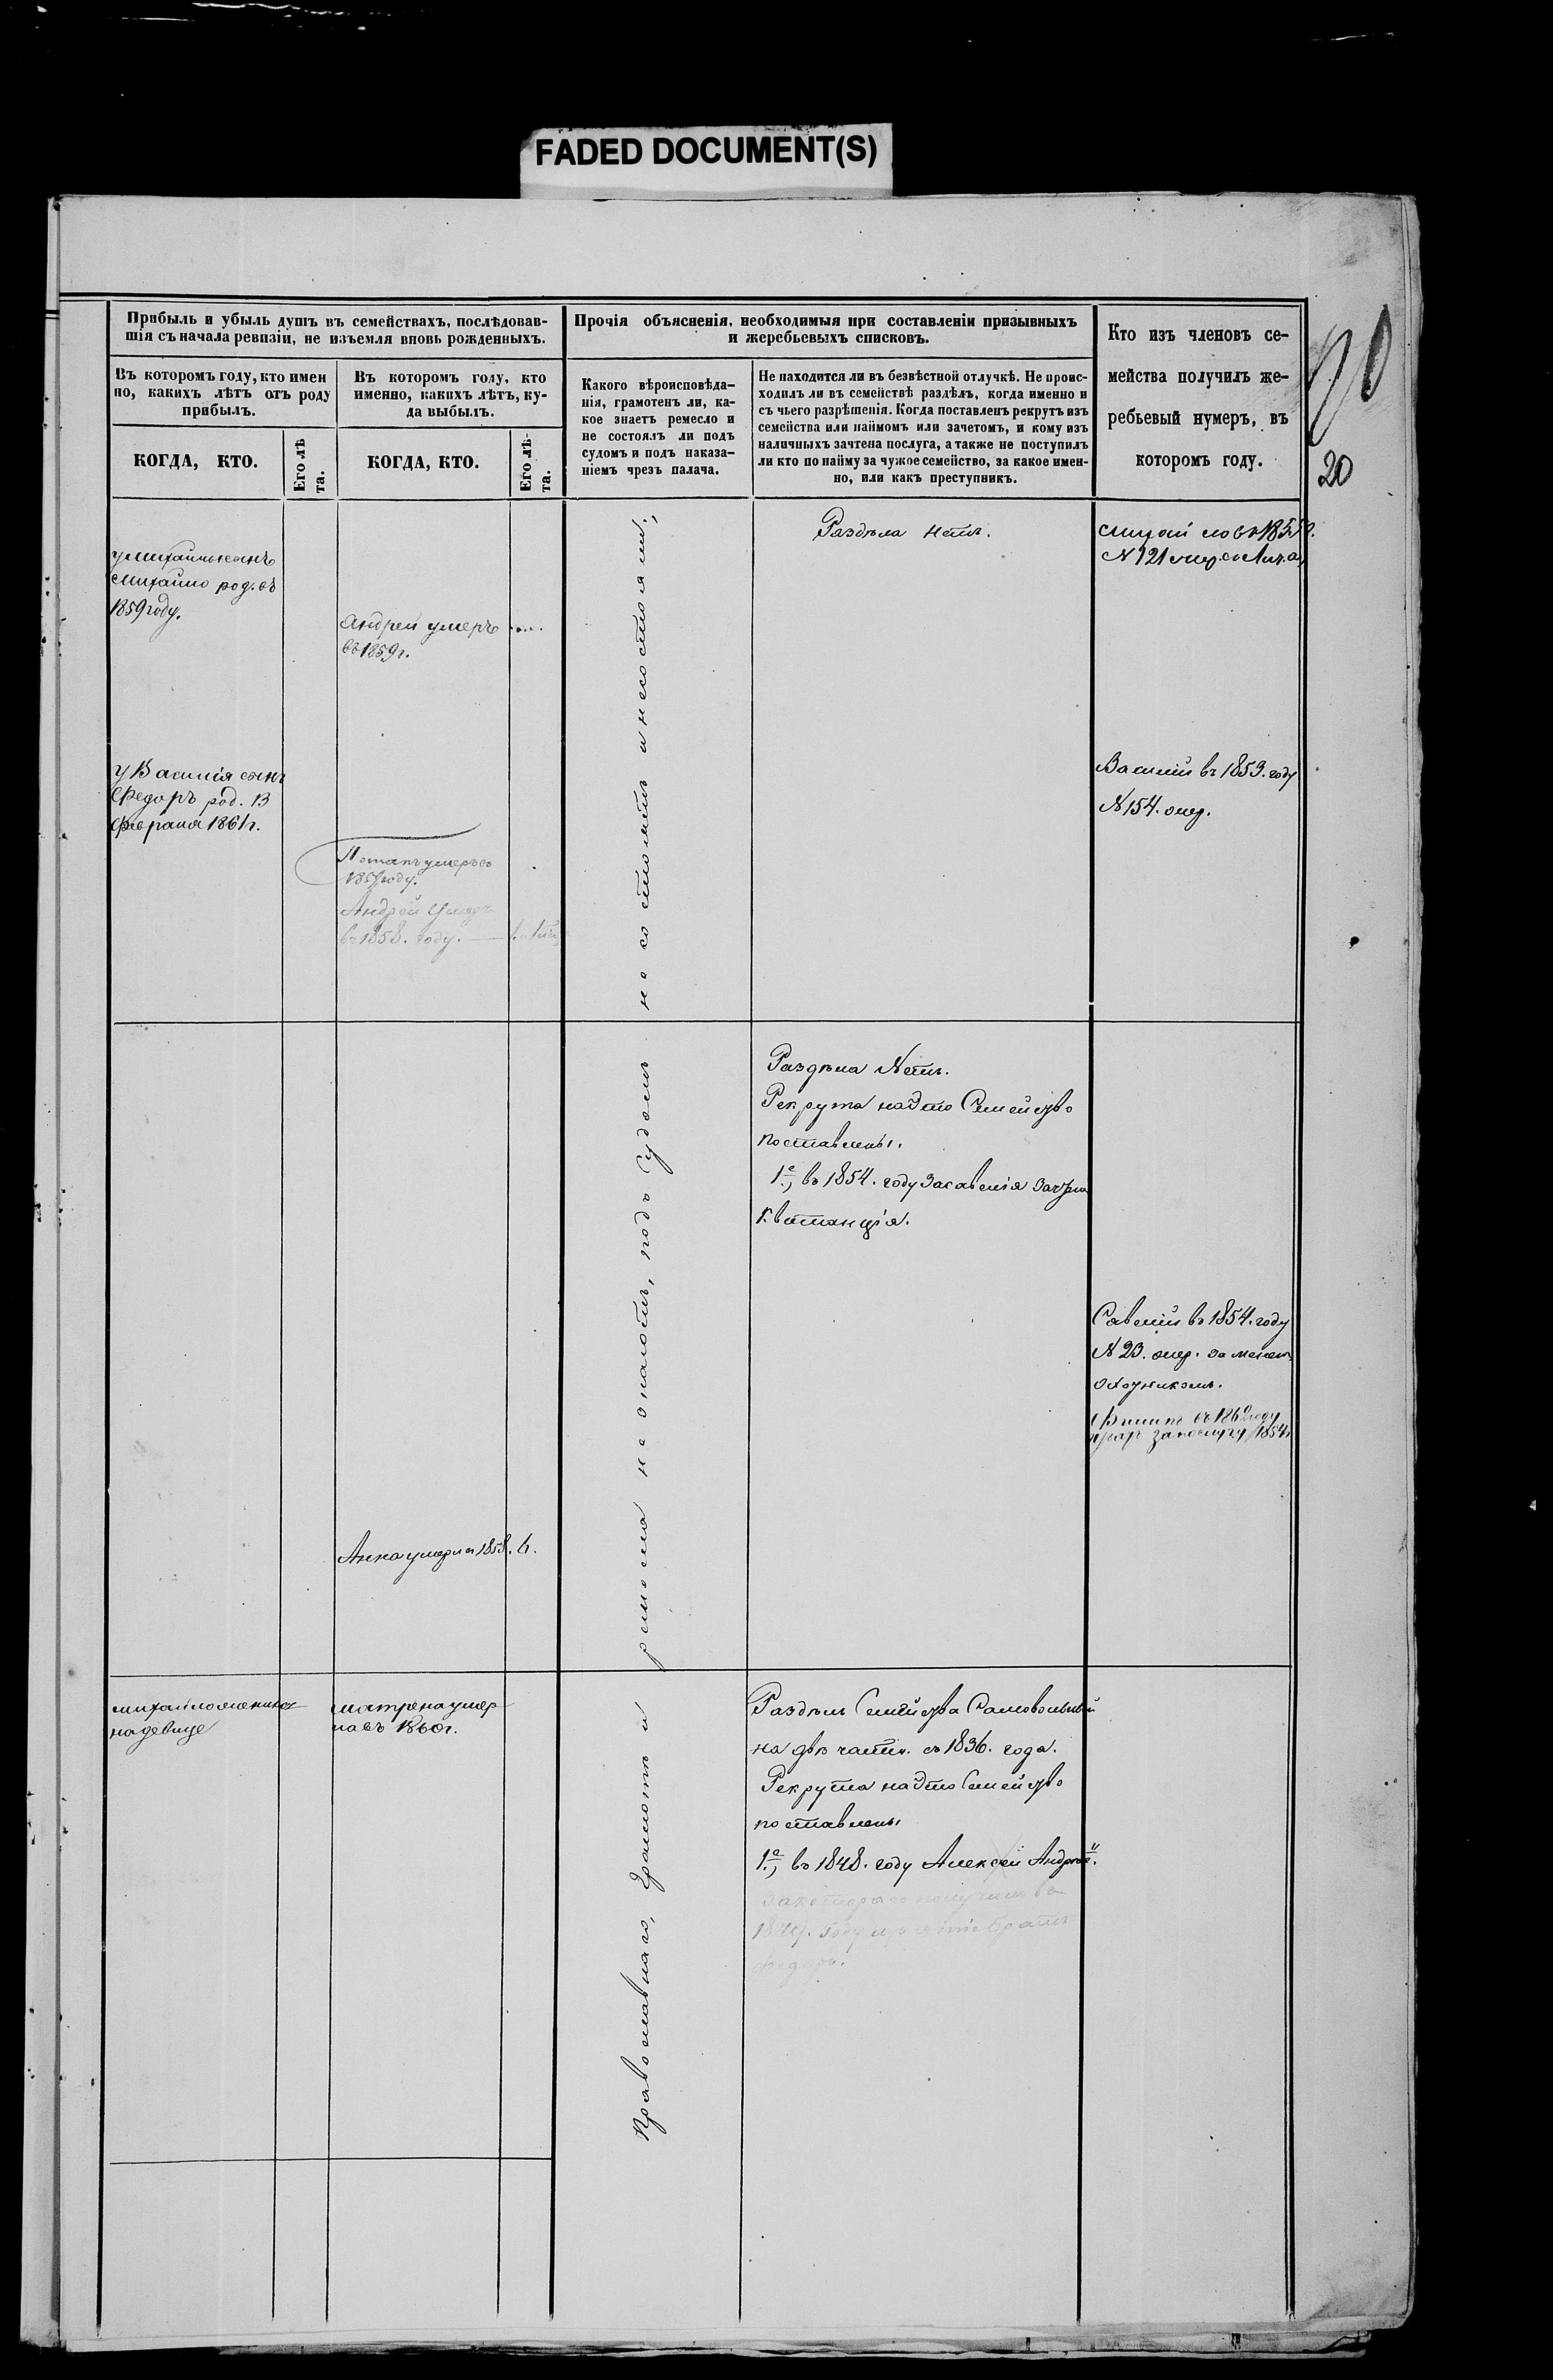 FADED DOCUMENT(S)
Прибыль и убыль душъ въ семействахъ, послѣдовав-
шія съ начала ревизіи, не изъемля вновь рожденныхъ.
Прочія объясненія, необходимыя при составленіи призывныхъ
и жеребьевыхъ списковъ.
Кто изъ членовъ се-
мейства получилъ же-
ребьевый нумеръ, въ
которомъ году.
Въ которомъ году, кто имен
но, какихъ лѣтъ отъ роду
прибылъ.
Въ которомъ году, кто
именно, какихъ лѣтъ, ку-
да выбылъ.
Какого вѣроисповѣда-
нія, грамотенъ ли, ка-
кое знаетъ ремесло и
не состоялъ ли подъ
судомъ и подъ наказа-
ніемъ чрезъ палача.
Не находится ли въ безвѣстной отлучкѣ. Не проис-
ходилъ ли въ семействѣ раздѣлъ, когда именно и
съ чьего разрѣшенія. Когда поставленъ рекрутъ изъ
семейства или наймомъ или зачетомъ, и кому изъ
наличныхъ зачтена послуга, а также не поступилъ
ли кто по найму за чужое семейство, за какое имен-
но, или какъ преступникъ.
КОГДА, КТО.
Его лѣ
та.
КОГДА, КТО.
Его лѣ-
та.
20
у Михайлы сынъ
Михайло род. въ
1859 году.
Андрей умеръ
въ 1859 г.
Раздѣла нѣтъ.
N 121
у Василія сынъ
Федоръ род. 13
февраля 1861 г.
Василій въ 1853. году
N 154. очер.
Потапъ умеръ въ
году.
Андрей умеръ
въ 1858. году.
Православнаго, Грамотѣ и ремесла не знаютъ, подъ Судомъ не состоятъ и не состояли.
Раздѣла Нѣтъ.
Рекрута на это Семейство
поставлены.
1е, въ 1854. году За Савелія зачтена
Квитанція.
Савелій въ 1854. году
N 23. очер. заменен
охотникомъ.
Филипъ въ году
за послугу 1854 г
Анна умерла 1858. 6.
Михайло женился
на девице
Матрена умер
ла въ 1860 г.
Раздѣлъ Семейства Самовольный
на двѣ части. съ 1836. года.
Рекрута на это Семейство
поставлены
1е, въ 1848. году Алексѣй Андрѣе.
За котораго получилъ въ
1849. году братъ
Федоръ.